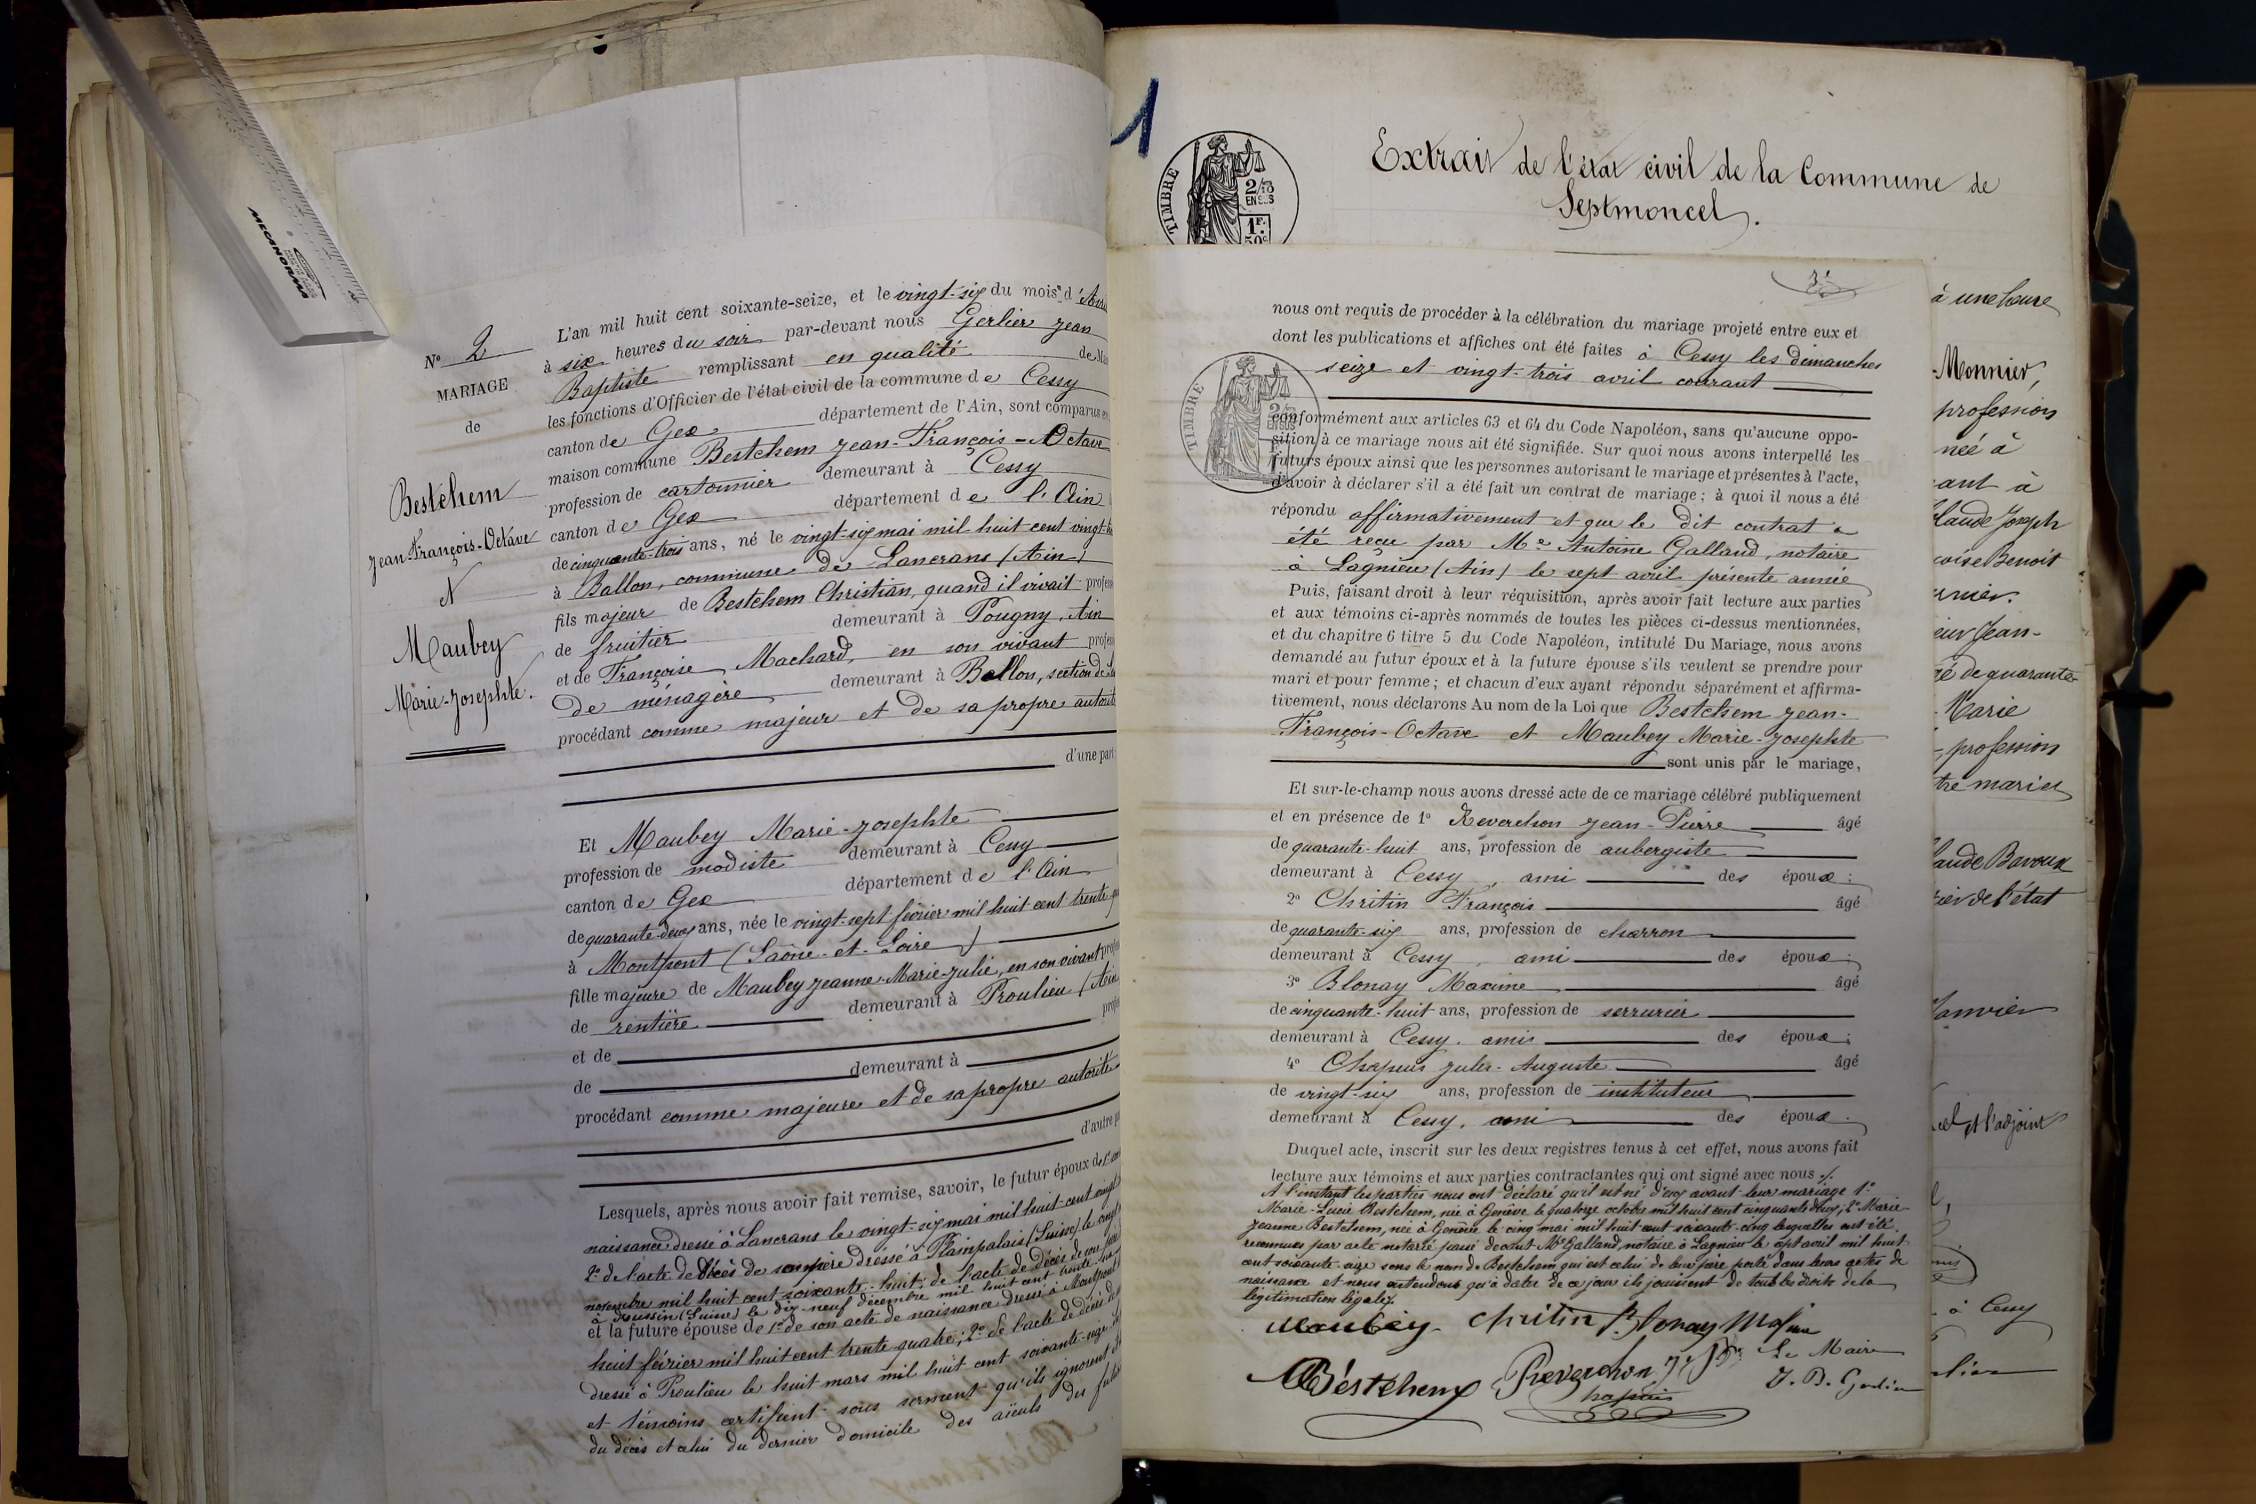 MECANORMA
N° 2
MARIAGE
de
Bestchem
Jean-François-Octave
N
Maubey
Marie-Josephte.
L'an mil huit cent soixante-seize, et le vingt-six du mois d'
à six heures du soir par-devant nous Gerlier Jean
Baptiste remplissant en qualité de
les fonctions d'Officier de l'état civil de la commune de Cessy
canton de Gex département de l'Ain, sont comparus en
maison commune Bestchem Jean-François-Octave
profession de cartonnier demeurant à Cessy
canton de Gex département de l'Ain
de cinquante-trois ans, né le vingt-six mai mil huit cent vingt-
à Ballon, commune de Lancrans (Ain)
fils majeur de Bestchem Christian, quand il vivait
de fruitier demeurant à Pougny, Ain
et de Françoise Machard, en son vivant
de ménagère demeurant à Ballon, section de
procédant comme majeur et de sa propre autorité
d'une part
Et Maubey Marie-Josephte
profession de modiste demeurant à Cessy
canton de Gex département de l'Ain
de quarante-deux ans, née le vingt-sept février mil huit cent trente
à Montpont (Saône-et-Loire)
fille majeure de Maubey Jeanne-Marie-Julie, en son vivant
de rentière demeurant à Proulieu (Ain
et de
de demeurant à
procédant comme majeure et de sa propre autorité
d'autre
Lesquels, après nous avoir fait remise, savoir, le futur époux de
naissance dressé à Lancrans le vingt-six mai mil huit cent vingt
2° de l'acte de décès de son père dressé à Plainpalais (Suisse) le vingt
novembre mil huit cent soixante-huit; de l'acte de décès de
à Russin (Suisse) le dix-neuf décembre mil huit cent trente
et la future épouse de 1° de son acte de naissance dressé à Montpont
huit février mil huit cent trente quatre; 2° de l'acte de décès de
dressé à Proulieu le huit mars mil huit cent soixante-seize
et témoins certifient sous serment qu'ils ignorent
du décès et celui du dernier domicile des aïeuls des
1
TIMBRE
2/10
EN SUS
1F.
50c
Extrait de l'état civil de la Commune de
Septmoncel.
nous ont requis de procéder à la célébration du mariage projeté entre eux et
dont les publications et affiches ont été faites à Cessy les dimanches
seize et vingt-trois avril courant
TIMBRE
conformément aux articles 63 et 64 du Code Napoléon, sans qu'aucune oppo-
sition à ce mariage nous ait été signifiée. Sur quoi nous avons interpellé les
futurs époux ainsi que les personnes autorisant le mariage et présentes à l'acte,
d'avoir à déclarer s'il a été fait un contrat de mariage; à quoi il nous a été
répondu affirmativement et que le dit contrat a
été reçu par Me Antoine Galland, notaire
à Lagnieu (Ain) le sept avril présente année
Puis, faisant droit à leur réquisition, après avoir fait lecture aux parties
et aux témoins ci-après nommés de toutes les pièces ci-dessus mentionnées,
et du chapitre 6 titre 5 du Code Napoléon, intitulé Du Mariage, nous avons
demandé au futur époux et à la future épouse s'ils veulent se prendre pour
mari et pour femme; et chacun d'eux ayant répondu séparément et affirma-
tivement, nous déclarons Au nom de la Loi que Bestchem Jean-
François-Octave et Maubey Marie-Josephte
sont unis par le mariage,
Et sur-le-champ nous avons dressé acte de ce mariage célébré publiquement
et en présence de 1° Reverchon Jean-Pierre âgé
de quarante-huit ans, profession de aubergiste
demeurant à Cessy, ami des époux;
2° Chritin François âgé
de quarante-six ans, profession de charron
demeurant à Cessy, ami des époux;
3° Blonay Maxime âgé
de cinquante-huit ans, profession de serrurier
demeurant à Cessy, ami des époux;
4° Chapuis Jules-Auguste âgé
de vingt-six ans, profession de instituteur
demeurant à Cessy, ami des époux.
Duquel acte, inscrit sur les deux registres tenus à cet effet, nous avons fait
lecture aux témoins et aux parties contractantes qui ont signé avec nous ./.
A l'instant les parties nous ont déclaré qu'il est né d'eux avant leur mariage 1°
Marie-Lucie Bestchem, née à Genève le quatorze octobre mil huit cent cinquante 2° Marie-
Jeanne Bestchem, née à Genève le cinq mai mil huit cent soixante-cinq lesquelles ont été
reconnues par acte notarié passé devant Me Galland, notaire à Lagnieu le sept avril mil huit
cent soixante-seize sous le nom de Bestchem qui est celui de leur père porté dans leurs actes de
naissance et nous entendons qu'à dater de ce jour ils jouissent de tous les droits de la
légitimation légale.
Maubey Chritin f. Blonay Maxime
Bestchem Reverchon J P Le Maire
Chapuis J. B. Gerlier
à une heure
Monnier,
profession
née à
ant à
Claude Joseph
coise Benoit
rnier.
eur Jean-
gé de quarante
Marie
profession
tre marier
laude Bavoux
cier de l'état
Janvier
cel et l'adjoint
à Cessy